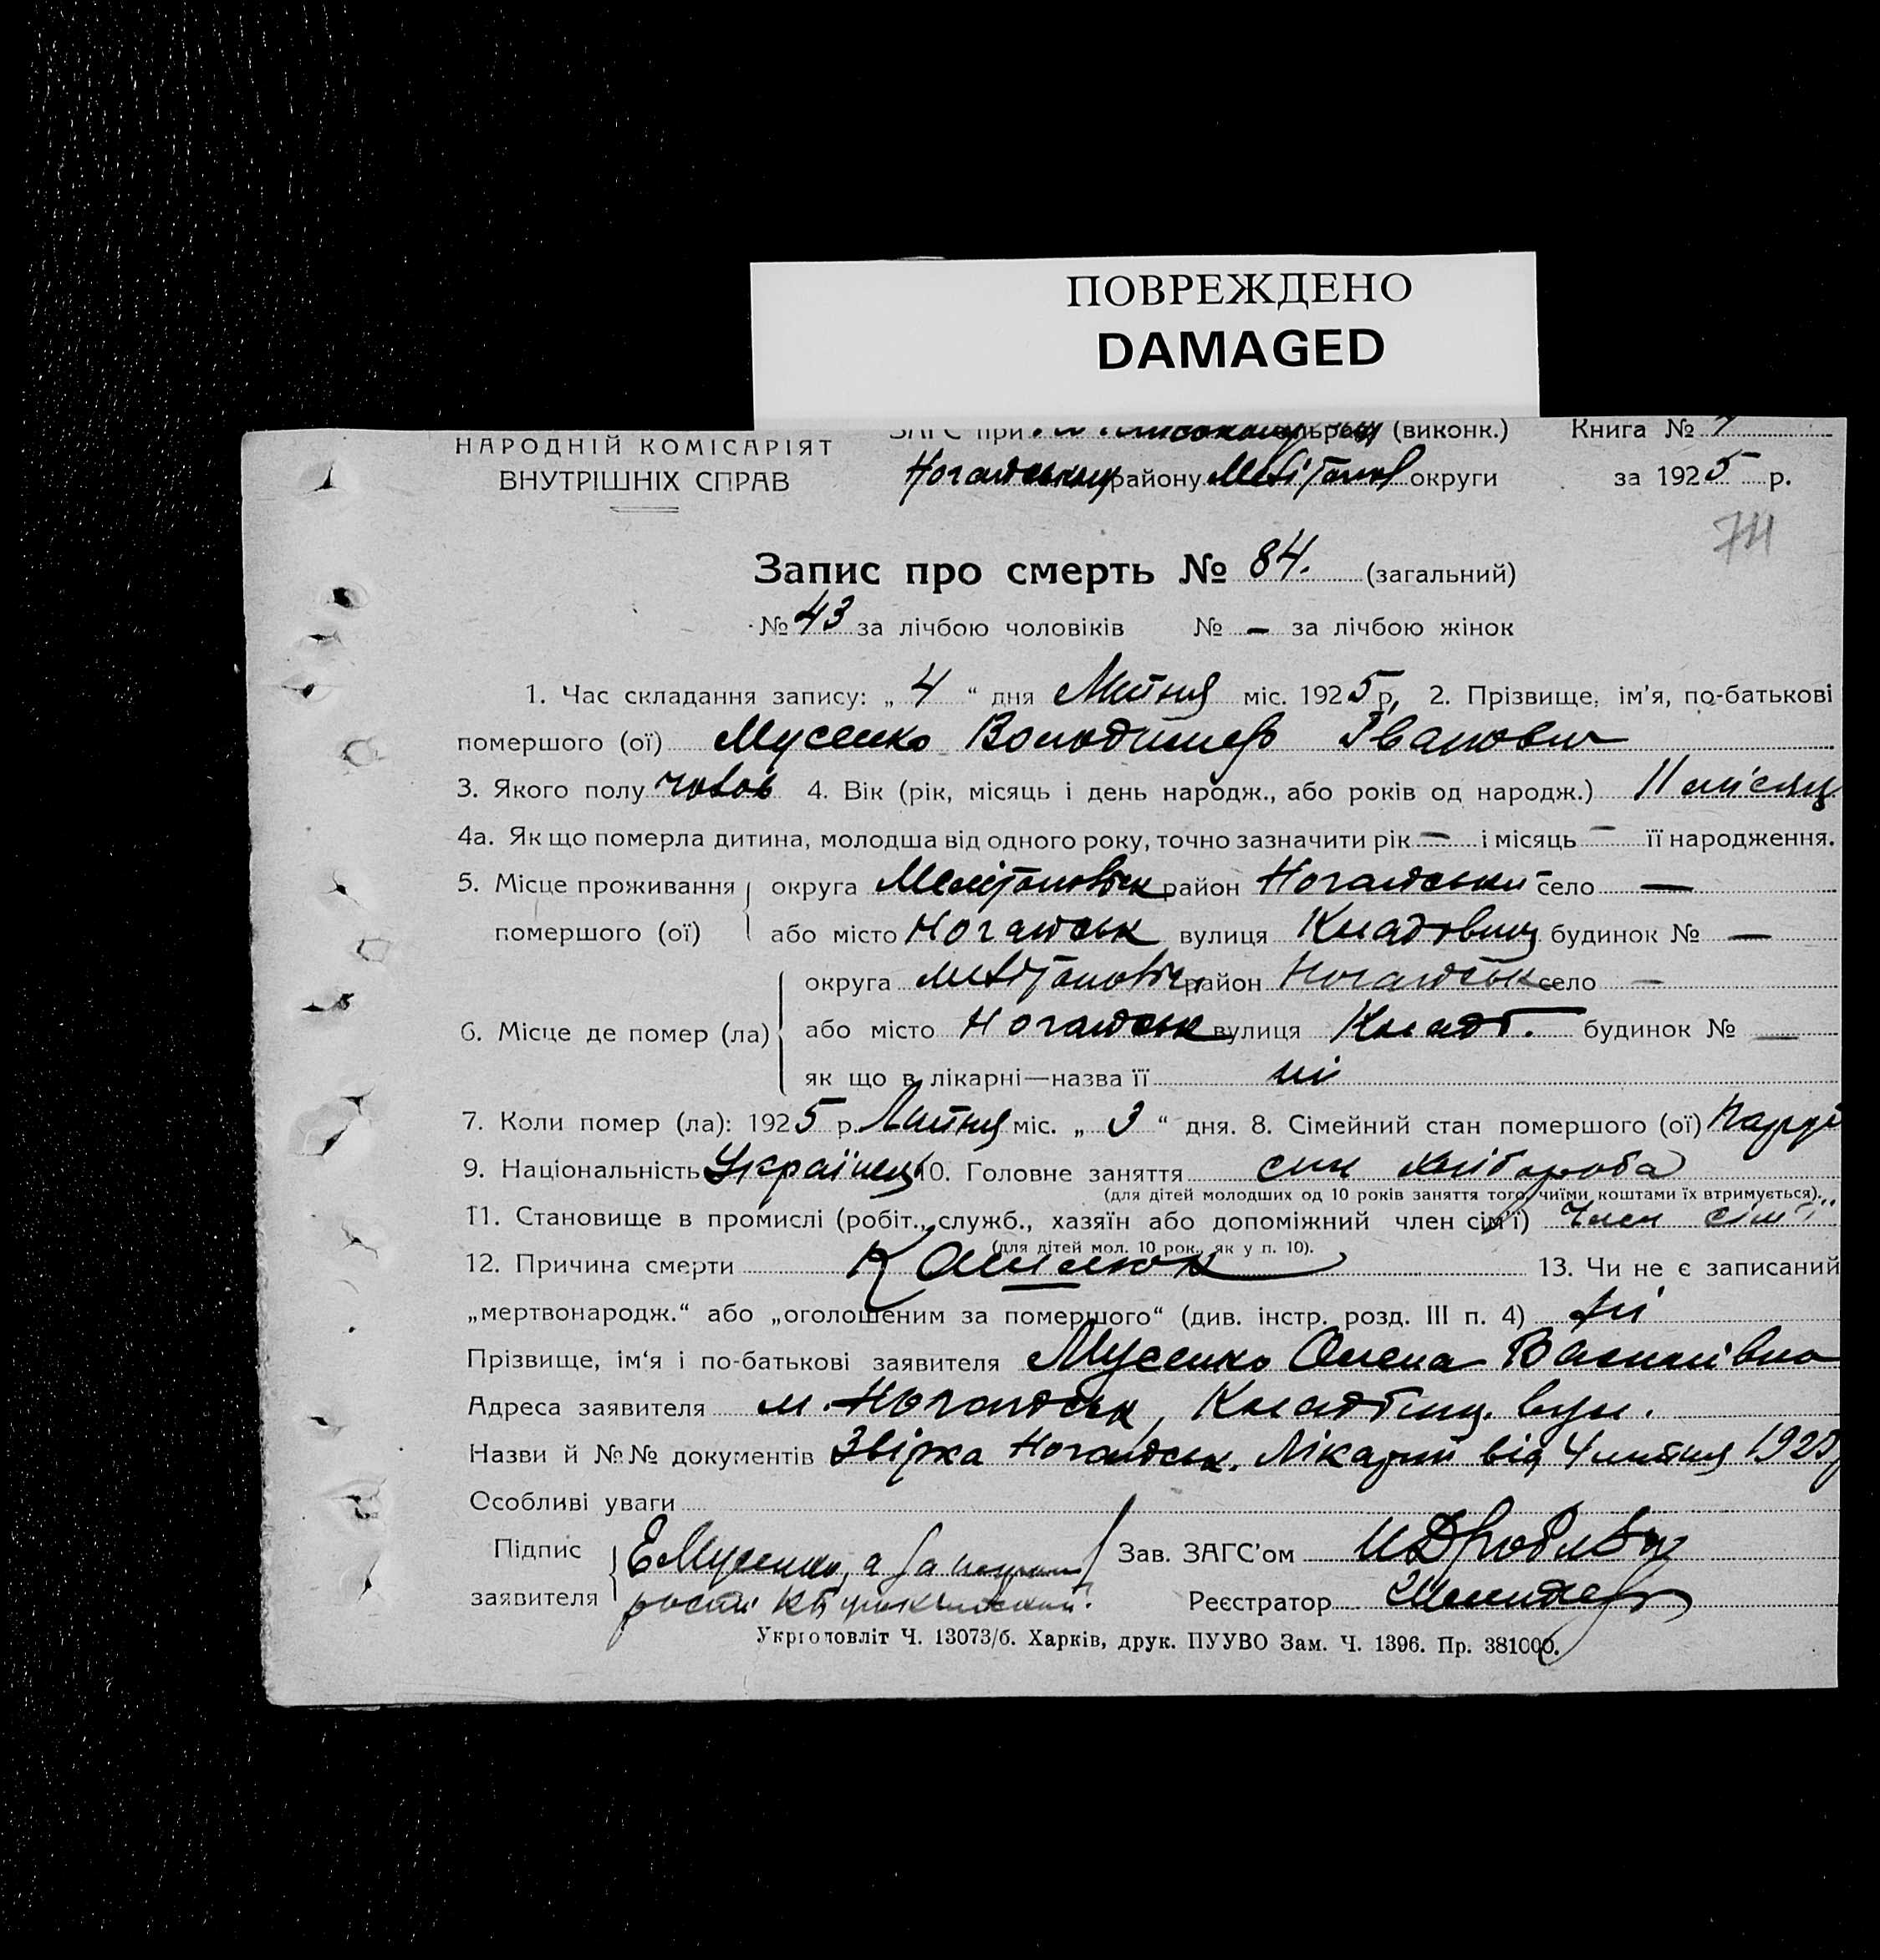 ПОВРЕЖДЕНО
DAMAGED
НАРОДНІЙ КОМІСАРІЯТ
ВНУТРІШНІХ СПРАВ
ЗАГС при (виконк.)
району округи
Книга №
за 1925 р.
74
Запис про смерть № 84. (загальний)
№ 43 за лічбою чоловіків № — за лічбою жінок
1. Час складання запису: „ 4 “ дня Липня міс. 1925 р. 2. Прізвище, ім'я, по-батькові
помершого (ої) Мусенко Володимир Іванович
3. Якого полу чолов 4. Вік (рік, місяць і день народж., або років од народж.) 11 місяц
4а. Як що померла дитина, молодша від одного року, точно зазначити рік — і місяць — її народження.
5. Місце проживання помершого (ої)
округа район Ногайськи село —
або місто Ногайськ вулиця будинок № —
6. Місце де помер (ла)
округа район Ногайськ село —
або місто Ногайськ вулиця Кладб. будинок № —
як що в лікарні—назва її ні
7. Коли помер (ла): 1925 р. Липня міс. „ 3 “ дня. 8. Сімейний стан помершого (ої)
9. Національність Українец 10. Головне заняття син хлібороба
(для дітей молодших од 10 років заняття того, чиїми коштами їх втримується).
11. Становище в промислі (робіт., служб., хазяїн або допоміжний член сім'ї) Член сім'ї
(для дітей мол. 10 рок., як у п. 10).
12. Причина смерти Кашлюк 13. Чи не є записаний
„мертвонародж.“ або „оголошеним за помершого“ (див. інстр. розд. III п. 4) ні
Прізвище, ім'я і по-батькові заявителя Мусенко Олена Василівна
Адреса заявителя м. Ногайськ, вул.
Назви й №№ документів Ногайськ. Лікарні від 4 липня 1925
Особливі уваги
Підпис
заявителя
Е Мусенко, а за
Зав. ЗАГС'ом
Реєстратор
Укрголовліт Ч. 13073/б. Харків, друк. ПУУВО Зам. Ч. 1396. Пр. 381000.